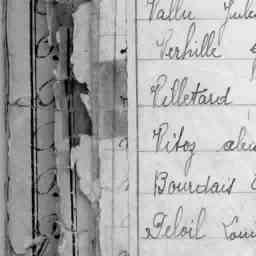 Vallu Jule
Verhille
Pilletard
Vitoz alex
Bourdais
Deloil Loui